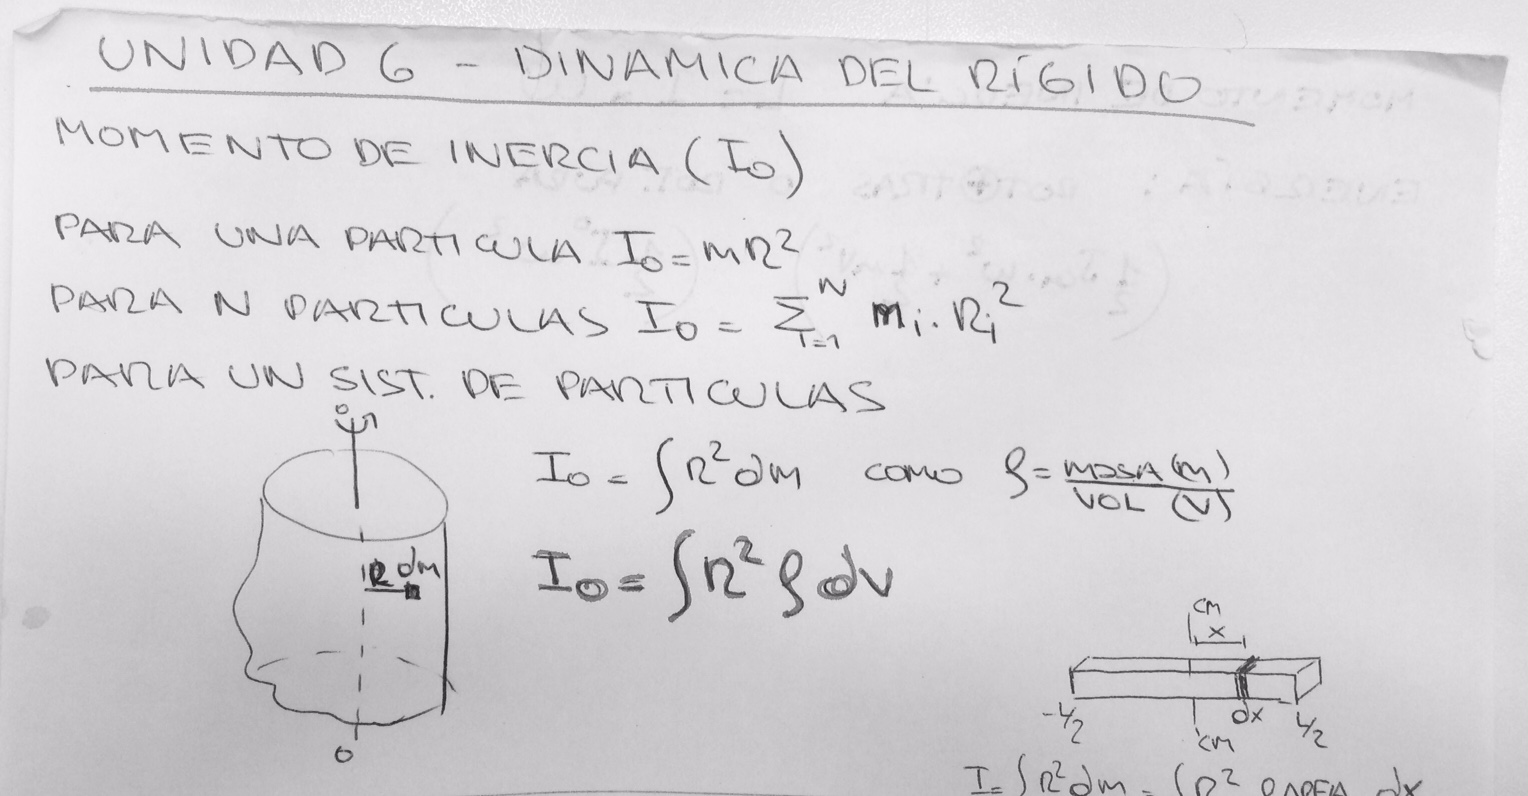 UNIDAD 6 - DINAMICA DEL RÍGIDO
MOMENTO DE INERCIA (I₀)
PARA UNA PARTICULA I₀ = mR²
PARA N PARTICULAS I₀ = Σᵢ₌₁ᴺ mᵢ . Rᵢ²
PARA UN SIST. DE PARTICULAS
0
I₀ = ∫R² dm como ρ = MASA (m) / VOL (V)
R dm
I₀ = ∫R² ρ dv
0
cm
x
-L/2 dx L/2
cm
I = ∫R² dm = ∫R² ρ AREA dx